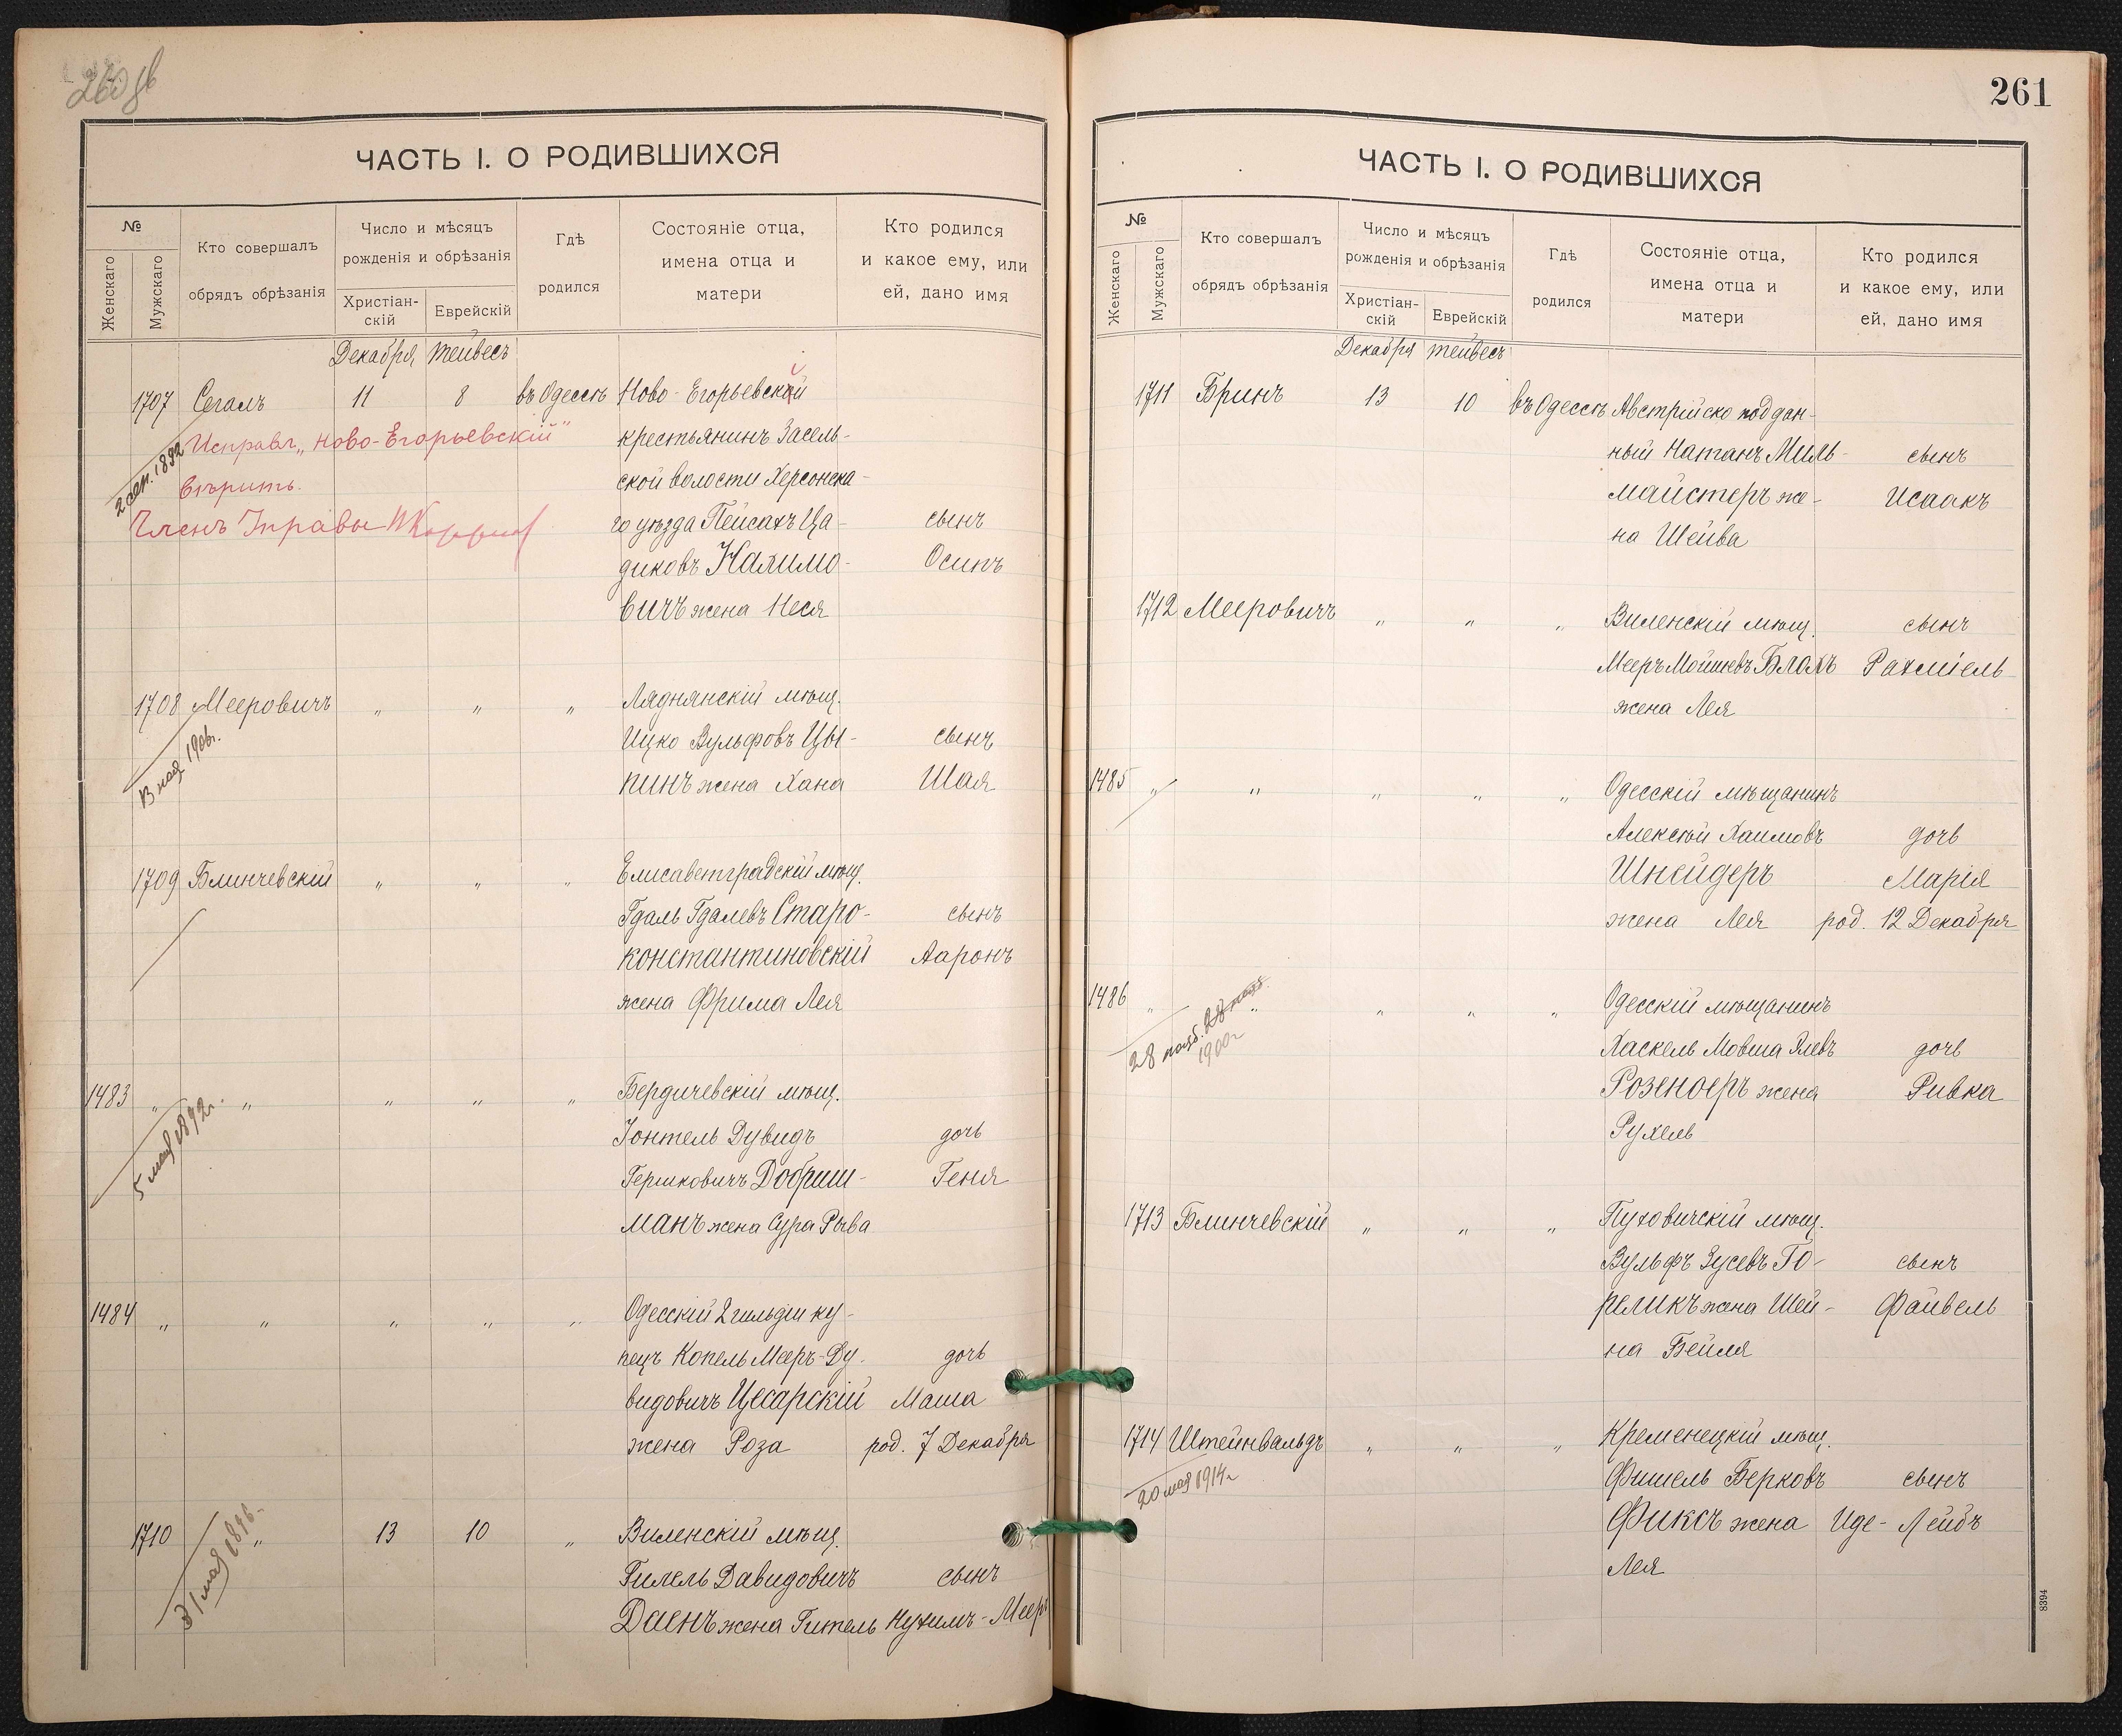 260 об
ЧАСТЬ I. О РОДИВШИХСЯ
№
Женскаго
Мужскаго
Кто совершалъ
обрядъ обрѣзанія
Число и мѣсяцъ
рожденія и обрѣзанія
Христіан-
скій
Еврейскій
Гдѣ
родился
Состояніе отца,
имена отца и
матери
Кто родился
и какое ему, или
ей, дано имя
Декабря Тейвесъ
1707 Сегалъ 11 8 въ Одессѣ Ново-Егорьевской
Исправл. „Ново-Егорьевскій" крестьянинъ Засель-
2 сен. 1892
вѣрить. ской волости Херсонска-
Членъ Управы го уѣзда Пейсахъ Ца- сынъ
диковъ Халимо- Осипъ
вичъ жена Неся
1708 Мееровичъ „ „ „ Ляднянскій мѣщ.
13 1906г.
Ицко Вульфовъ Цы- сынъ
пинъ жена Хана Шая
1709 Блинчевскій „ „ „ Елисаветградскій мѣщ.
Гдаль Гдалевъ Старо- сынъ
константиновскій Ааронъ
жена Фрима Лея
1483 „ „ „ „ „ Бердичевскій мѣщ.
5 мая 1892г.
Іонтель Дувидъ дочь
Гершковичъ Добриш- Геня
манъ жена Сура Рыва
1484 „ „ „ „ „ Одесскій 2 гильдіи ку-
пецъ Копель Мееръ-Ду- дочь
видовичъ Цесарскій Маша
жена Роза род. 7 Декабря
1710 „ 13 10 „ Виленскій мѣщ.
31 мая 1896
Гилель Давидовичъ сынъ
Даенъ жена Гитель Нухимъ-Мееръ
261
ЧАСТЬ I. О РОДИВШИХСЯ
№
Женскаго
Мужскаго
Кто совершалъ
обрядъ обрѣзанія
Число и мѣсяцъ
рожденія и обрѣзанія
Христіан-
скій
Еврейскій
Гдѣ
родился
Состояніе отца,
имена отца и
матери
Кто родился
и какое ему, или
ей, дано имя
Декабря Тейвесъ
1711 Бринъ 13 10 въ Одессѣ Австрійско поддан-
ный Натанъ Миль- сынъ
майстеръ же- Исаакъ
на Шейва
1712 Мееровичъ „ „ „ Виленскій мѣщ. сынъ
Мееръ Мойшевъ Блохъ Рахміель
жена Лея
1485 „ „ „ „ „ Одесскій мѣщанинъ
Алексѣй Хаимовъ дочь
Шнейдеръ Марія
жена Лея род. 12 Декабря
1486 „ „ „ „ „ Одесскій мѣщанинъ
28 нояб. 1900г
Хаскель Мовша дочь
Розеноеръ жена Ривка
Рухель
1713 Блинчевскій „ „ „ Пуховичскій мѣщ.
Вульфъ Зусевъ Го- сынъ
реликъ жена Шей- Файвель
на Бейля
1714 Штейнвальдъ „ „ „ Кременецкій мѣщ.
20 мая 1914г
Фишель Берковъ сынъ
Фиксъ жена Иде-Лейбъ
Лея
8394